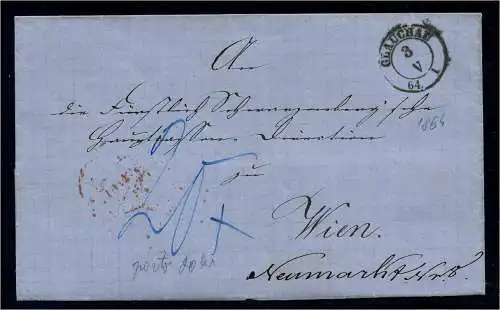 GLAUCHAU
3
V
64.
An
die Fürstlich Schwarzenberg'sche
Hauptkassen Direction
zu
Wien.
Neumarkt Nr 8.
1864
porto